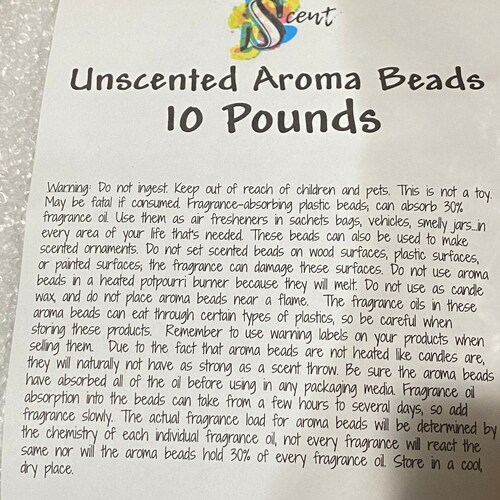 Scent
Unscented Aroma Beads
10 Pounds
Warning: Do not ingest. Keep out of reach of children and pets. This is not a toy.
May be fatal if consumed. Fragrance-absorbing plastic beads; can absorb 30%
fragrance oil. Use them as air fresheners in sachets bags, vehicles, smelly jars...in
every area of your life that's needed. These beads can also be used to make
scented ornaments. Do not set scented beads on wood surfaces, plastic surfaces,
or painted surfaces; the fragrance can damage these surfaces. Do not use aroma
beads in a heated potpourri burner because they will melt. Do not use as candle
wax, and do not place aroma beads near a flame. The fragrance oils in these
aroma beads can eat through certain types of plastics, so be careful when
storing these products. Remember to use warning labels on your products when
selling them. Due to the fact that aroma beads are not heated like candles are,
they will naturally not have as strong as a scent throw. Be sure the aroma beads
have absorbed all of the oil before using in any packaging media. Fragrance oil
absorption into the beads can take from a few hours to several days, so add
fragrance slowly. The actual fragrance load for aroma beads will be determined by
the chemistry of each individual fragrance oil, not every fragrance will react the
same nor will the aroma beads hold 30% of every fragrance oil. Store in a cool,
dry place.